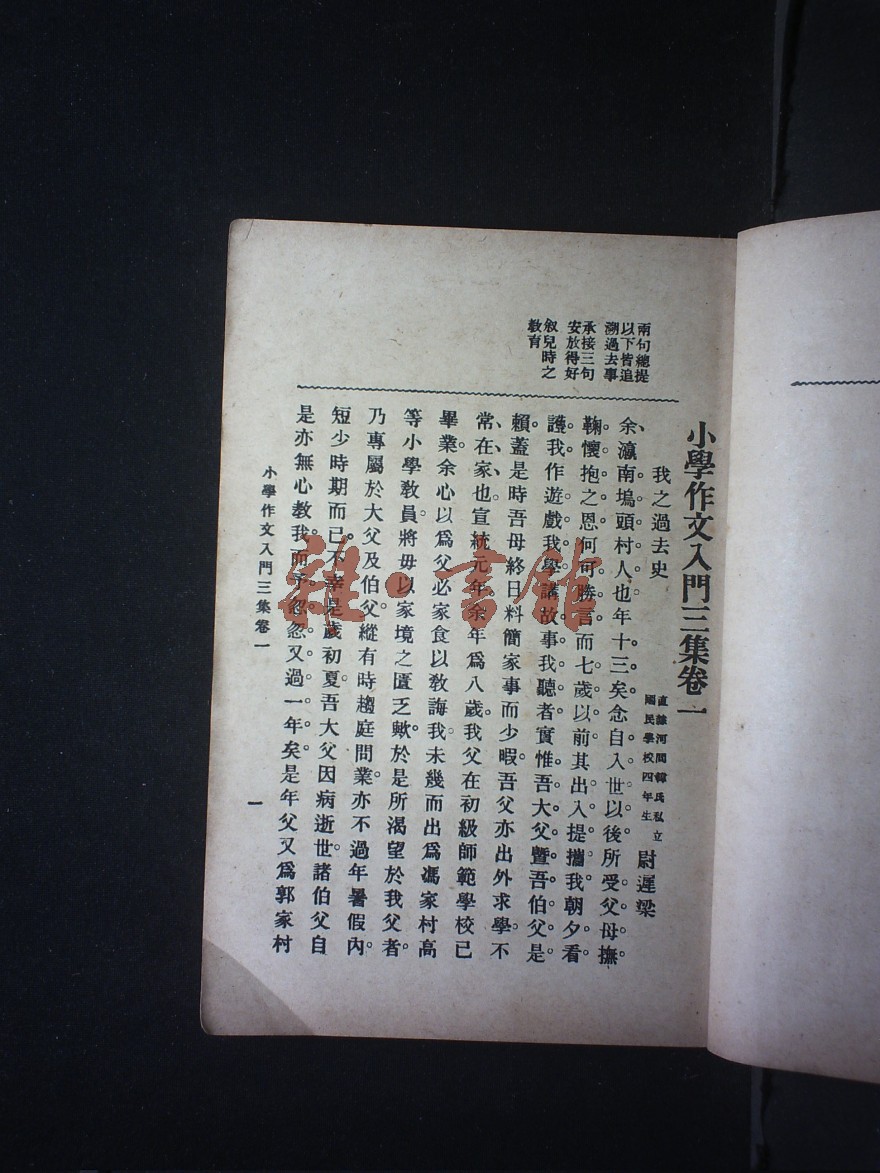 小學作文入門三集卷一
我之過去史
直隸河間韓氏私立
國民學校四年生
尉遲樑
余瀛南塢頭村人也年十三矣念自入世以後所受父母撫
鞠懷抱之恩何可勝言而七歲以前其出入提攜我朝夕看
護我作遊戲我學講故事我聽者實惟吾大父暨吾伯父是
賴蓋是時吾母終日料簡家事而少暇吾父亦出外求學不
常在家也宣統元年余年爲八歲我父在初級師範學校已
畢業余心以爲父必家食以敎誨我未幾而出爲馮家村高
等小學敎員將毋以家境之匱乏歟於是所渴望於我父者
乃專屬於大父及伯父縱有時趨庭問業亦不過年暑假內
短少時期而已不幸是歲初夏吾大父因病逝世諸伯父自
是亦無心敎我而予忽忽又過一年矣是年父又爲郭家村
兩句總提
以下皆追
溯過去事
承接三句
安放得好
敘兒時之
敎育
小學作文入門三集卷一
一
雜·書館